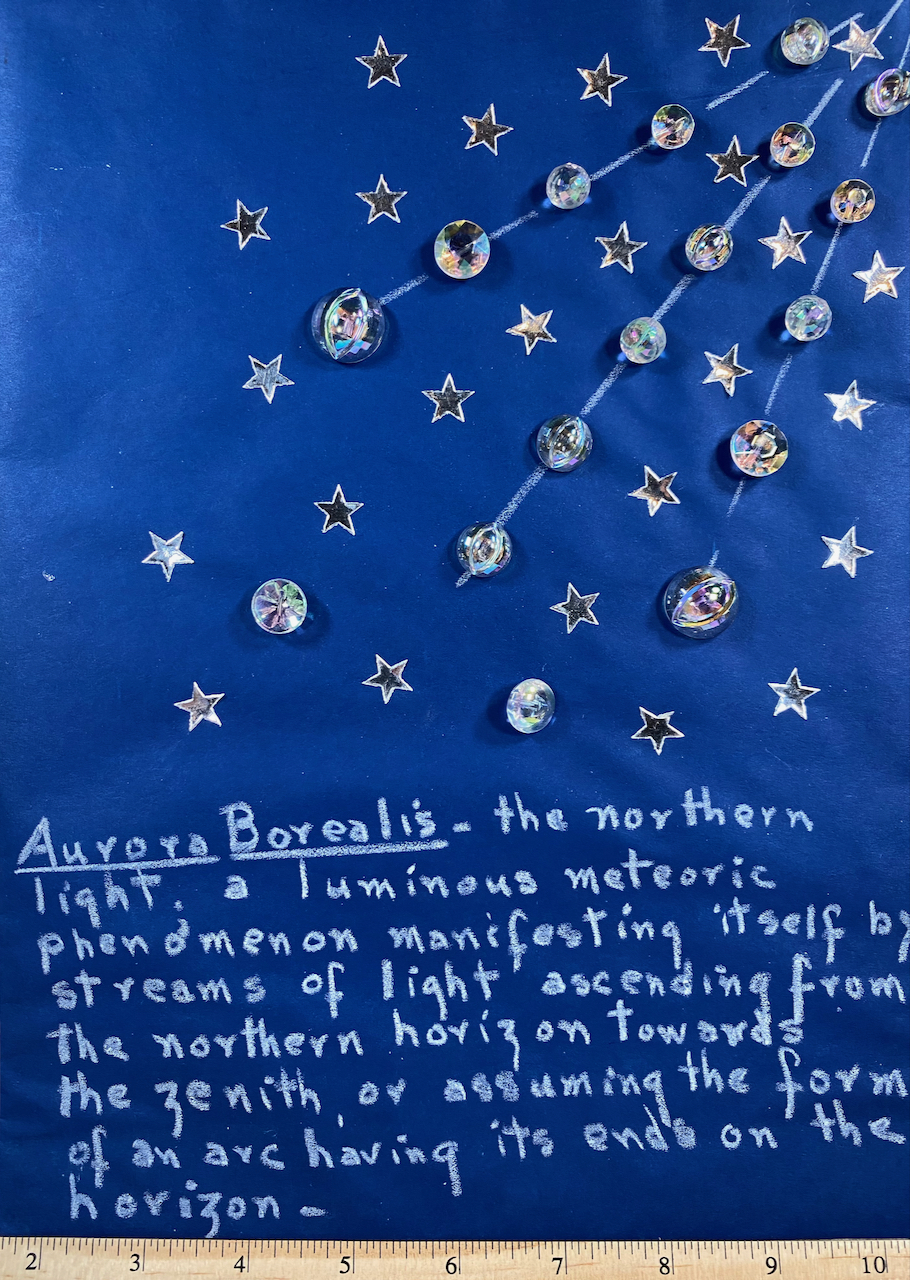 Aurora Borealis - the northern
light. a luminous meteoric
phenomenon manifesting itself by
streams of light ascending from
the northern horizon towards
the zenith, or assuming the form
of an arc having its ends on the
horizon -
2 3 4 5 6 7 8 9 10